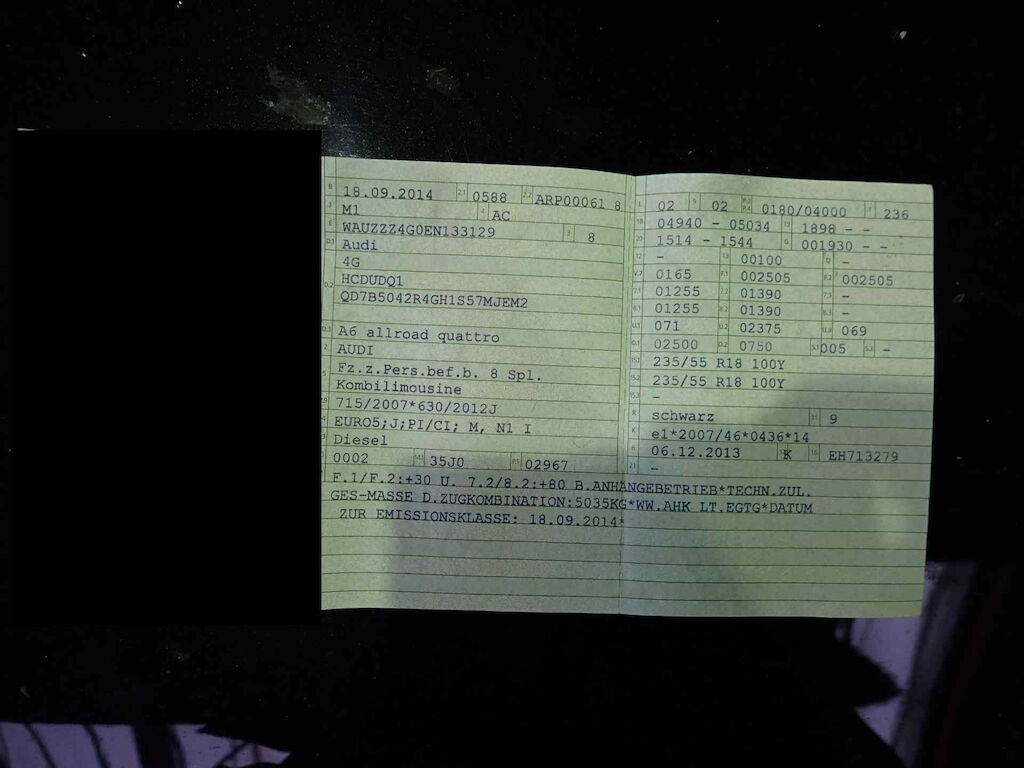 B 18.09.2014 2.1 0588 2.2 ARP00061 8
J M1 4 AC
E WAUZZZ4G0EN133129 3 8
D.1 Audi
4G
D.2 HCDUDQ1
QD7B5042R4GH1S57MJEM2
D.3 A6 allroad quattro
2 AUDI
5 Fz.z.Pers.bef.b. 8 Spl.
Kombilimousine
V.9 715/2007*630/2012J
EURO5;J;PI/CI; M, N1 I
Diesel
0002 14.1 35J0 P.1 02967
L 02 9 02 P.2 P.4 0180/04000 T 236
18 04940 - 05034 19 1898 - -
20 1514 - 1544 G 001930 - -
12 - 13 00100 Q -
V.7 0165 F.1 002505 F.2 002505
7.1 01255 7.2 01390 7.3 -
8.1 01255 8.2 01390 8.3 -
U.1 071 U.2 02375 U.3 069
O.1 02500 O.2 0750 S.1 005 S.2 -
15.1 235/55 R18 100Y
15.2 235/55 R18 100Y
15.3 -
R schwarz 11 9
K e1*2007/46*0436*14
6 06.12.2013 17 K 16 EH713279
21 -
F.1/F.2:+30 U. 7.2/8.2:+80 B.ANHÄNGEBETRIEB*TECHN.ZUL.
GES-MASSE D.ZUGKOMBINATION:5035KG*WW.AHK LT.EGTG*DATUM
ZUR EMISSIONSKLASSE: 18.09.2014*